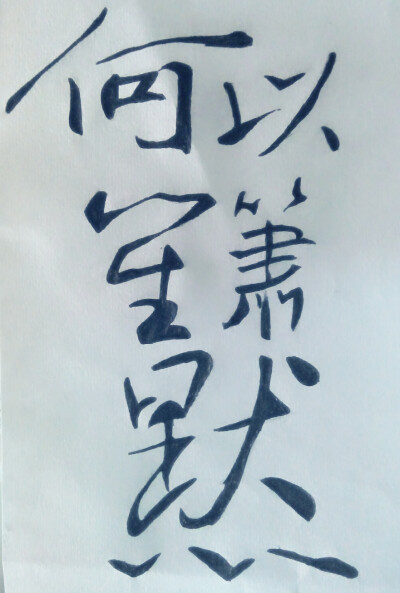 何以
笙簫
默